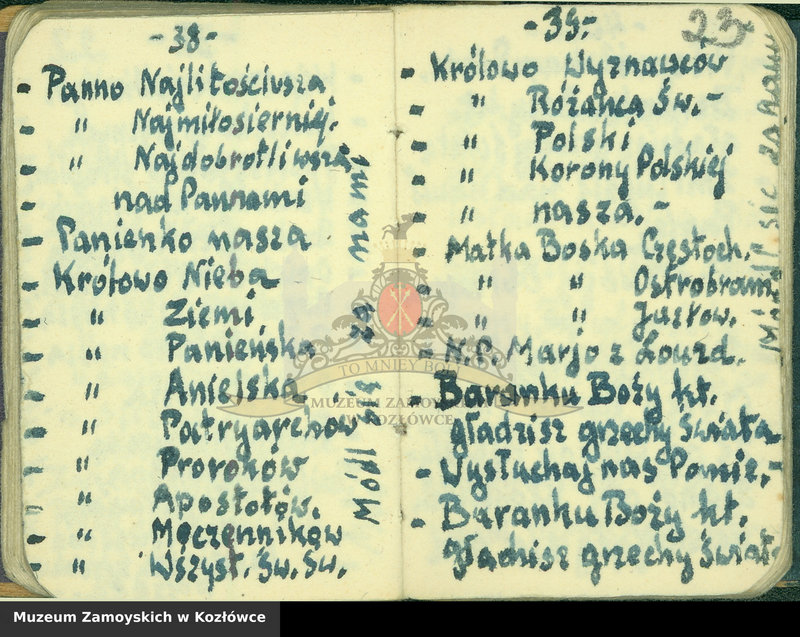 -38-
- Panno Najlitościwsza
- " Najmiłosierniej.
- " Najdobrotliwsza
- nad Pannami
- Panienko nasza
- Królowo Nieba
- " Ziemi
- " Panieńska
- " Anielska
- " Patryarchów
- " Proroków
- " Apostołów.
- " Męczenników
- " Wszyst. Św. Św.
Módl się za nami
-39-
23
- Królowo Wyznawców
- " Różańca Św.-
- " Polski
- " Korony Polskiej
- " nasza.-
- Matka Boska Częstoch.-
- " " Ostrobram.
- " " Jazłow.
- N.P. Marjo z Lourd.
- Baranku Boży kt.
gładzisz grzechy świata
- Wysłuchaj nas Panie.-
- Baranku Boży kt.
gładzisz grzechy świat-
Módl się za nami
TO MNIEY BOLI
MUZEUM ZAMOYSKICH
W KOZŁÓWCE
Muzeum Zamoyskich w Kozłówce